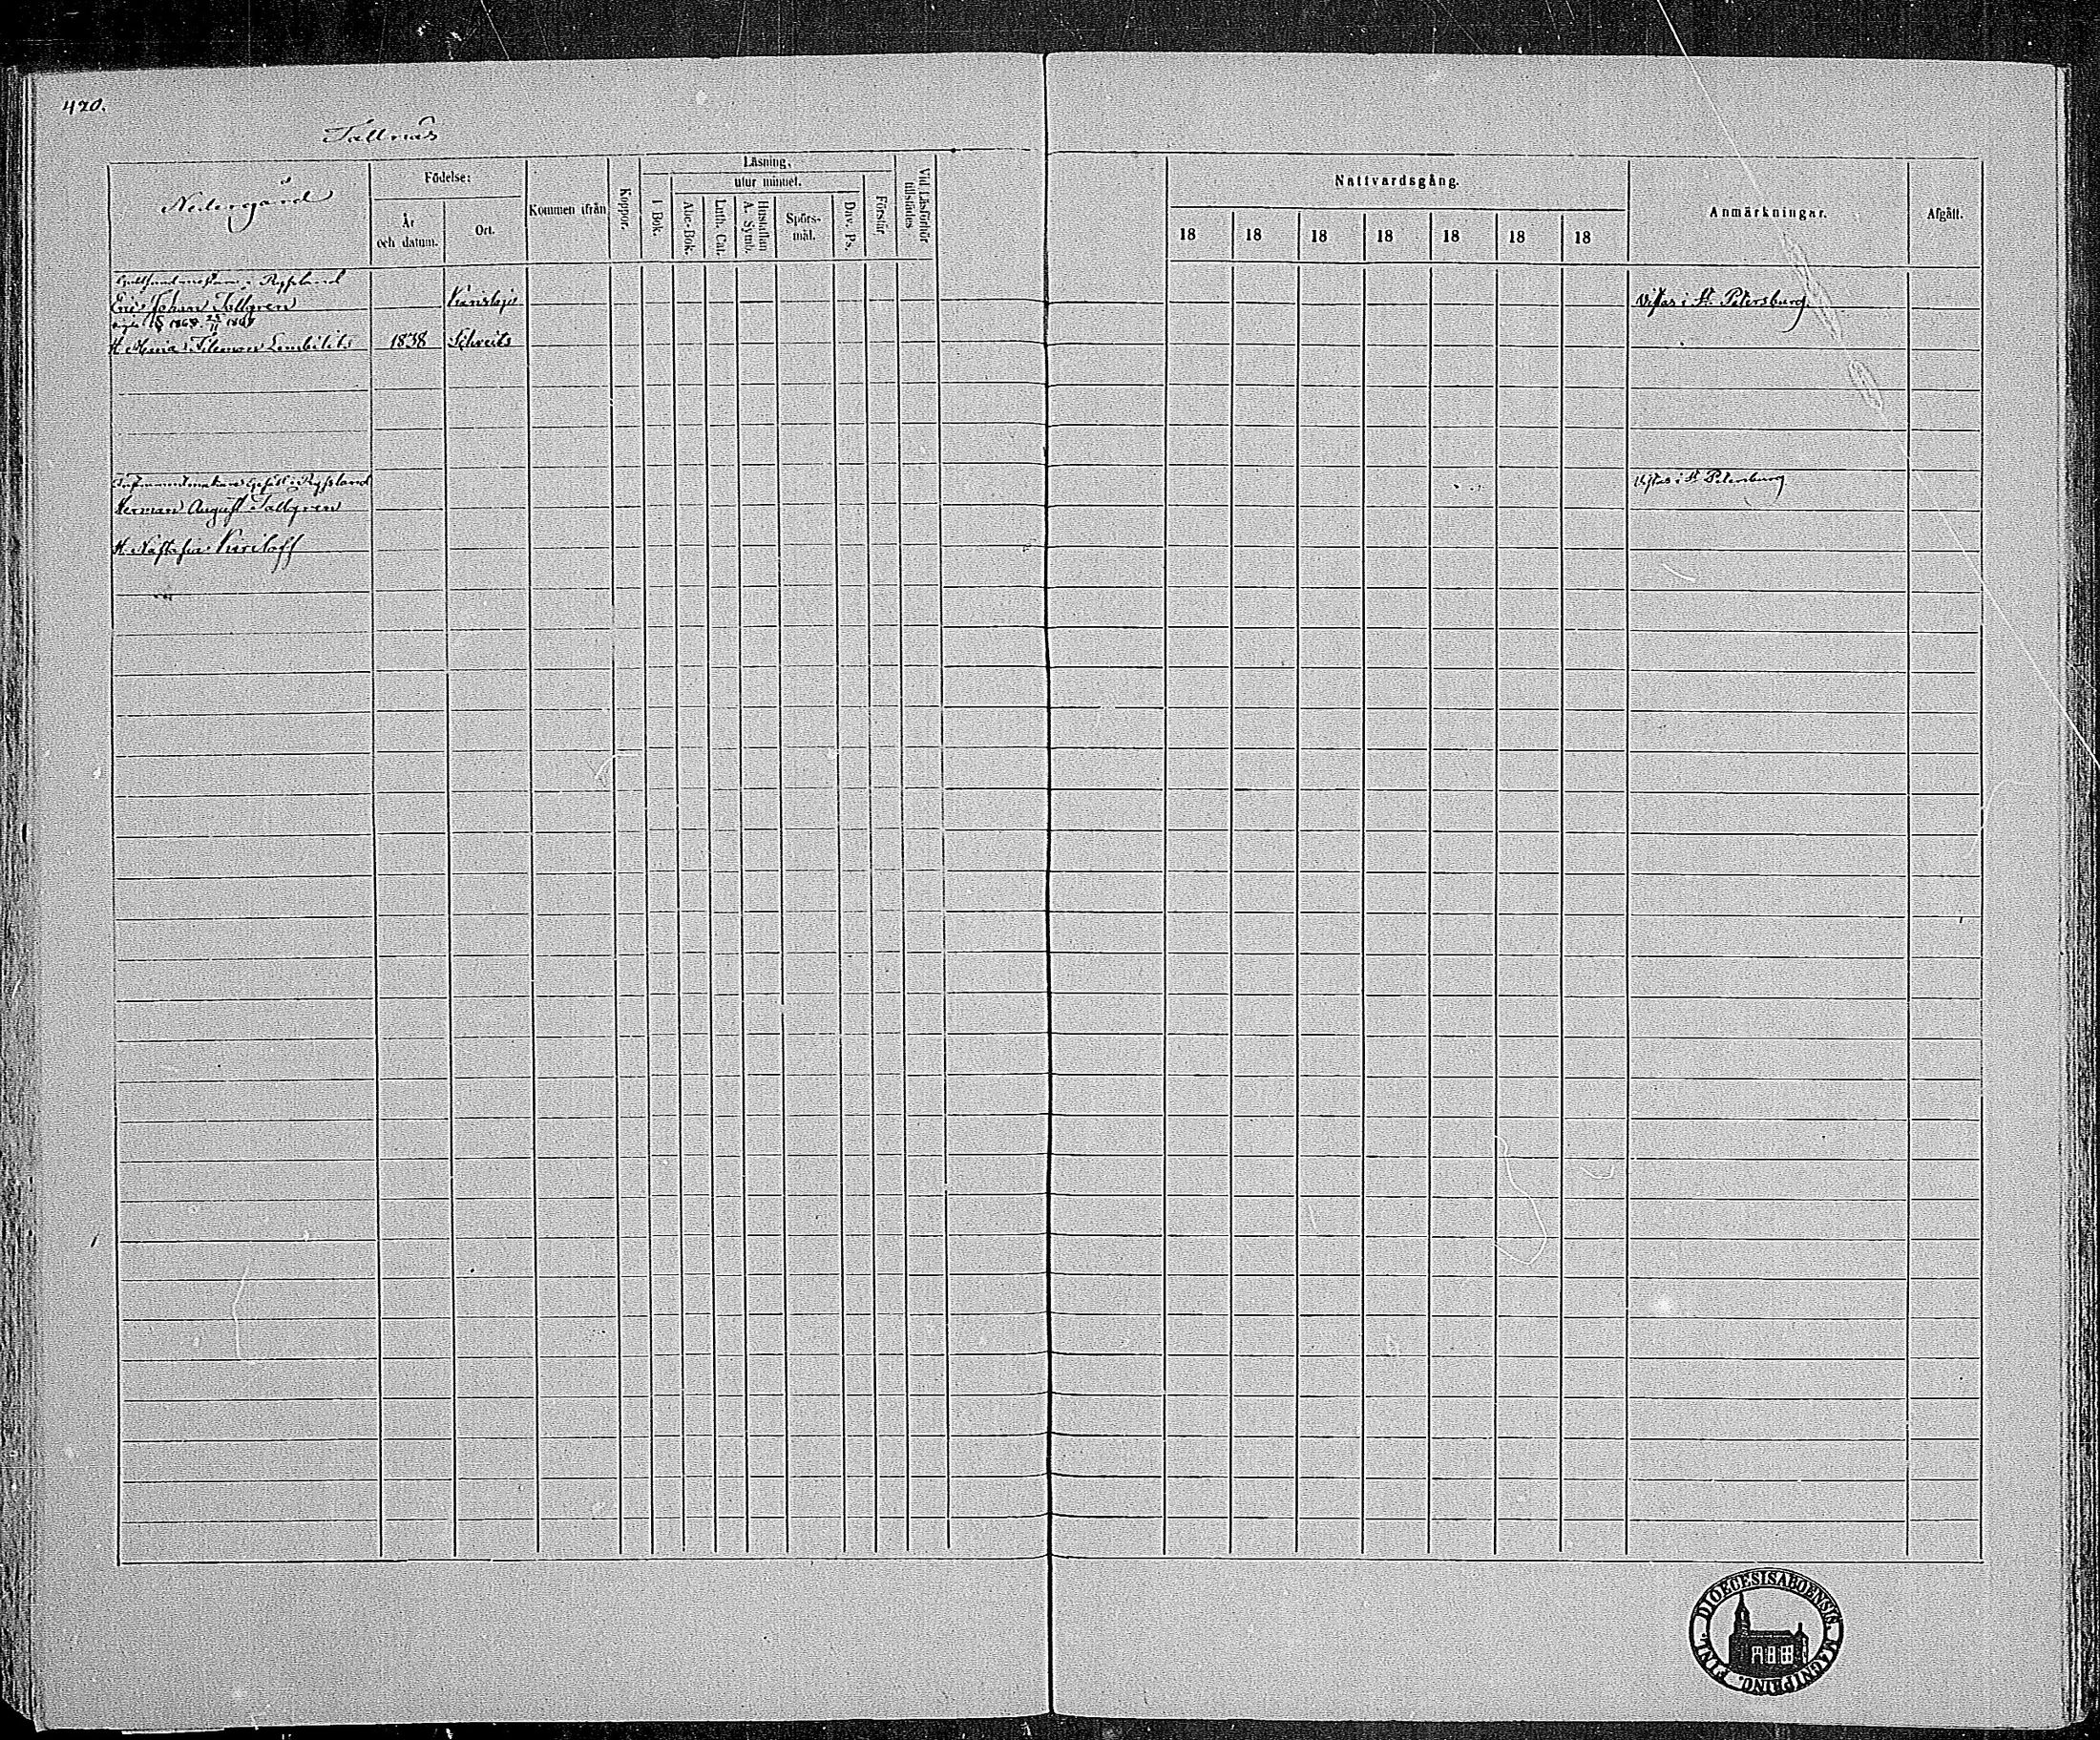 420.
Tallnäs
Nedergård
Födelse:
År och datum.
Ort.
Kommen ifrån
Koppor.
Läsning,
utur minnet.
I Bok.
Abc-Bok.
Luth. Cat.
Hustaflan A. Symb.
Spörs-mål.
Dav. Ps.
Förstår
Vid Läsförhör tillstädes
Nattvardsgång.
18 18 18 18 18 18 18
Anmärkningar.
Afgått.
i Ryssland
Eric Johan Tallgren Karislojo Vistas i St. Petersburg.
1868
H. Maria 1838 Schveits
Instrumentmakare Gesäll i Ryssland Vistas i St Petersburg
Herman August Tallgren
H. Nastasia Kuriloff
FINL. DIOECESIS ABOENSIS. MAGNI PRINC.